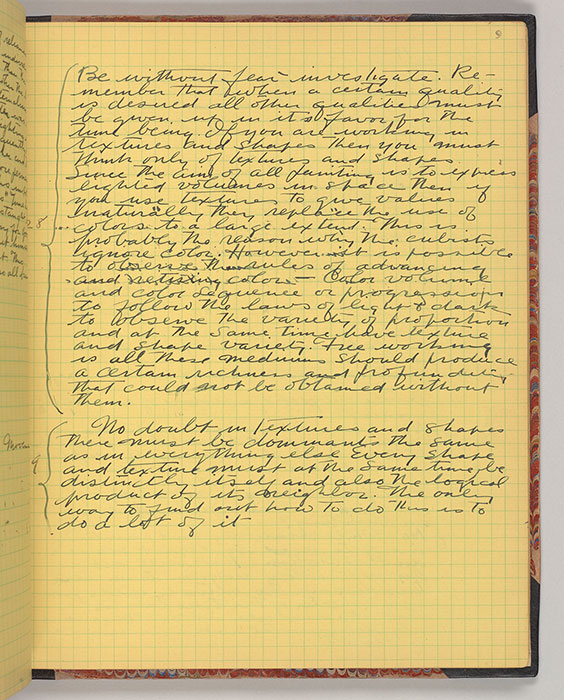 9
Be without fear investigate. Re-
member that when a certain quality
is desired all other qualities must
be given up in its favor for the
time being. If you are working in
textures and shapes then you must
think only of textures and shapes
Since the aim of all painting is to express
lighted volumes in space then if
you use textures to give values
naturally they replace the use of
colors to a large extend. This is
probably the reason why the cubists
ignore color. However it is possible
to observe the rules of advancing
and retiring colors - Color volume
and color sequence or progression
to follow the laws of light & dark
to observe the variety of proportion
and at the same time have texture
and shape variety. Free working
is all these mediums should produce
a certain richness and profundity
that could not be obtained without
them.
8
No doubt in textures and shapes
there must be dominants the same
as in everything else Every shape
and texture must at the same time be
distinctly itself and also the logical
product of its neighbor. The only
way to find out how to do this is to
do a lott of it
9